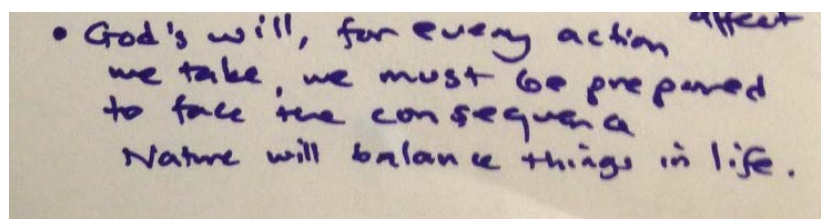 affect
• God's will, for every action
we take, we must be prepared
to face the consequence
Nature will balance things in life.